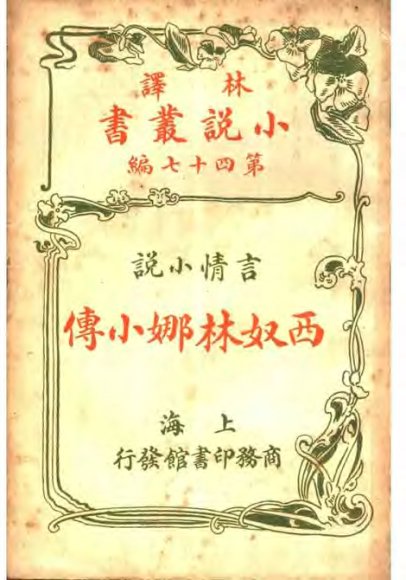 林譯
小説叢書
第四十七編
言情小説
西奴林娜小傳
上海
商務印書館發行